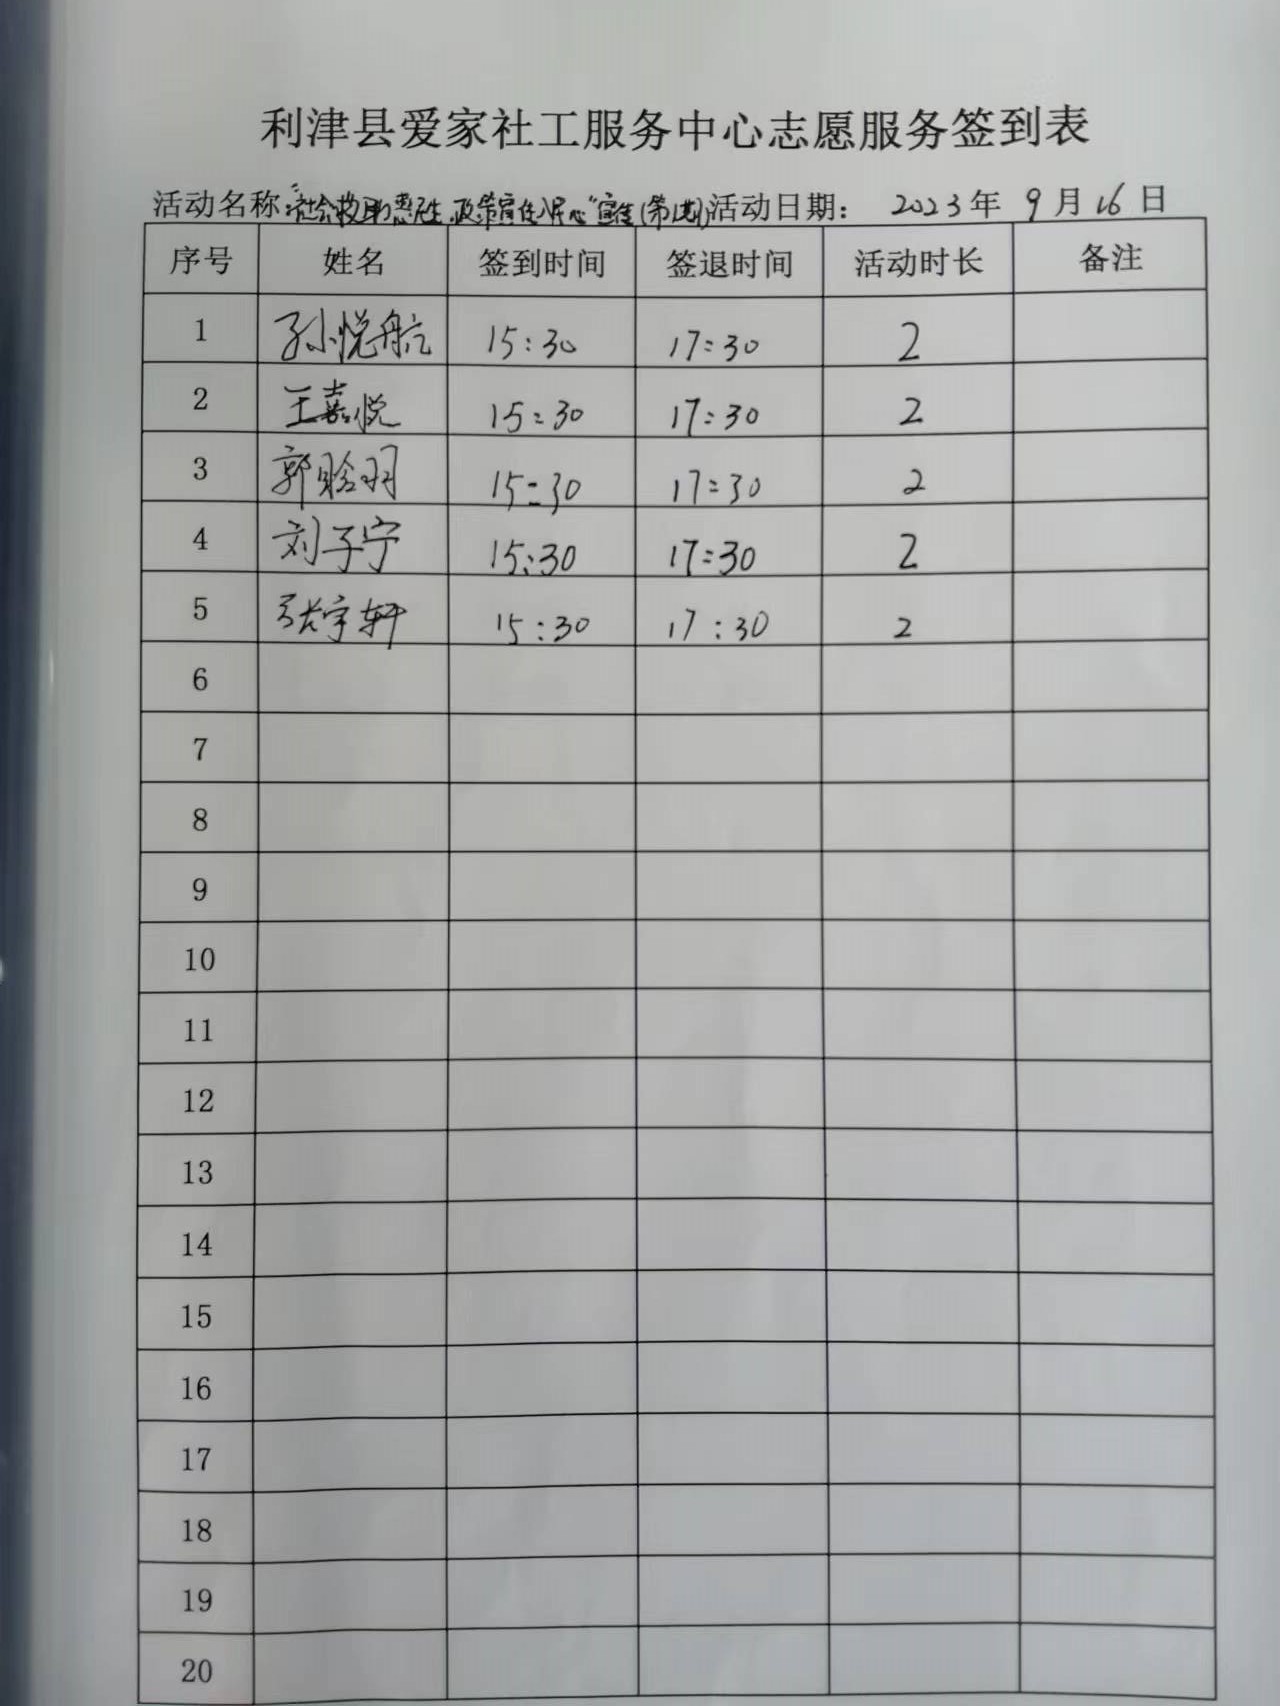 利津县爱家社工服务中心志愿服务签到表
活动名称:“社会救助惠民生,政策宣传入民心”宣传(第1期) 活动日期: 2023年 9月 16日
序号 姓名 签到时间 签退时间 活动时长 备注
1 孙悦航 15:30 17:30 2
2 王嘉悦 15:30 17:30 2
3 郭晗羽 15:30 17:30 2
4 刘子宁 15:30 17:30 2
5 张宇轩 15:30 17:30 2
6
7
8
9
10
11
12
13
14
15
16
17
18
19
20